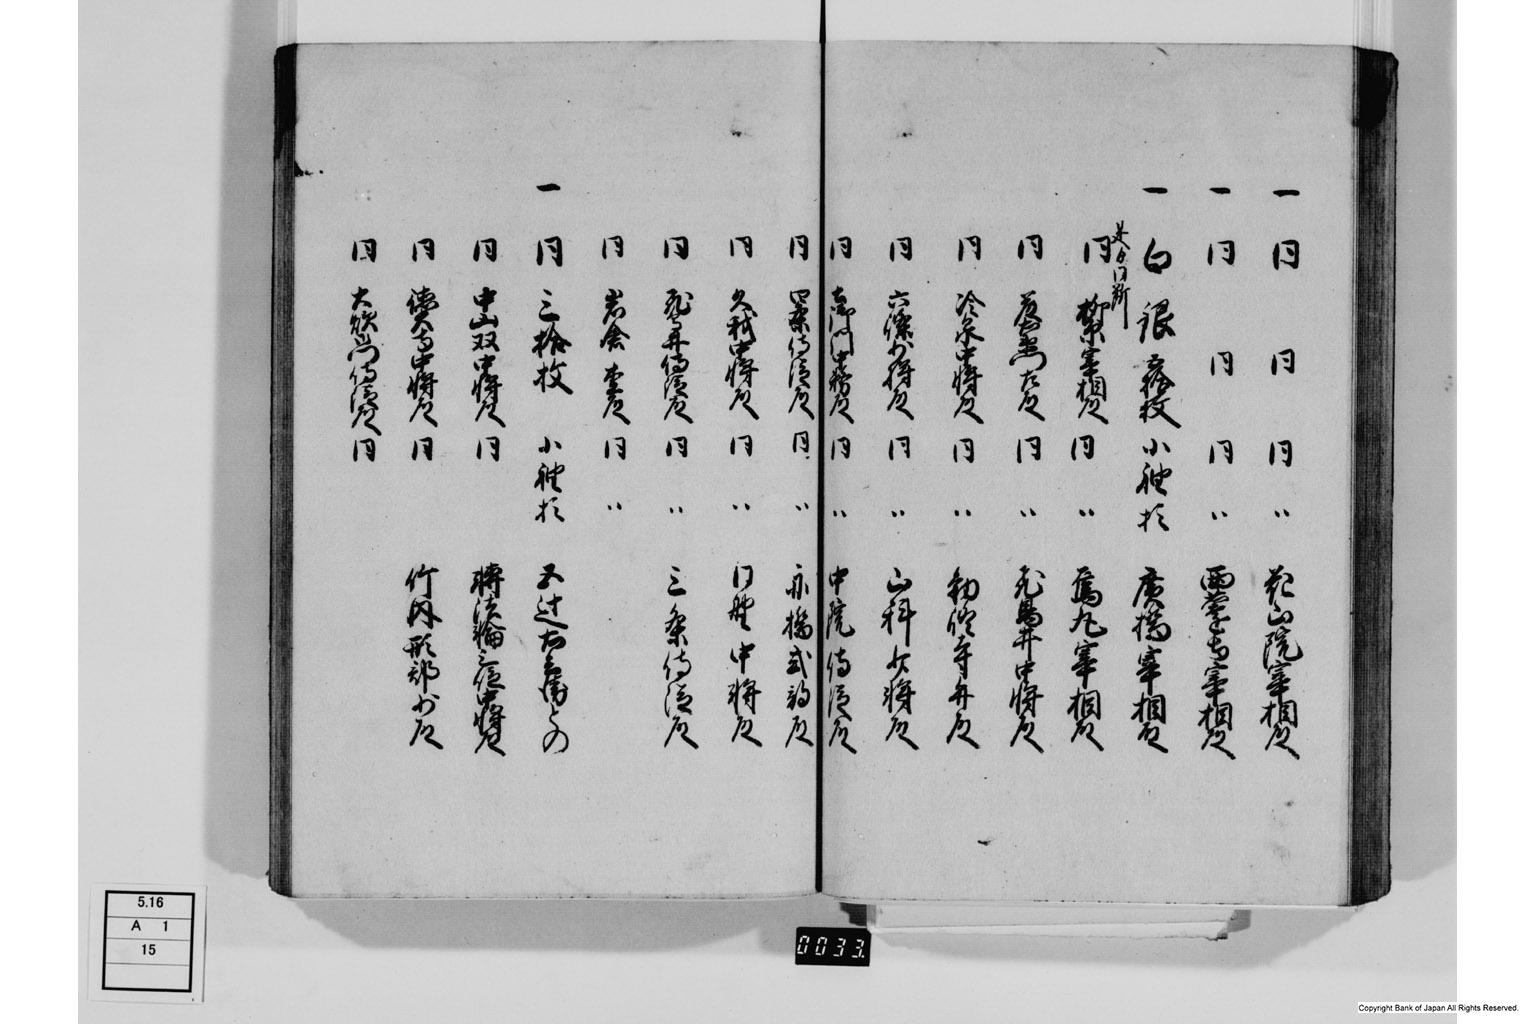 一 同 同 同 〃 花山院宰相殿
一 同 同 同 〃 西
宰相殿
一 白銀 五拾枚 小袖拾 廣橋宰相殿
同 柳原宰相殿 同 〃 烏丸宰相殿
同 左 殿 同 〃 飛鳥井中将殿
同 冷泉中将殿 同 〃 勧修寺弁殿
同 六条少将殿 同 〃 山科少将殿
同 中務殿 同 〃 中院侍従殿
同 四条侍従殿 同 〃 舟橋式部殿
同 久我中将殿 同 〃 中将殿
同 飛鳥井侍従殿 同 〃 三条侍従殿
同 岩倉 殿 同 〃
一 同 三拾枚 小袖拾 五辻 との
同 中山 中将殿 同 転法輪三位中将殿
同 徳大寺中将殿 同 竹内刑部少殿
同 大炊門侍従殿 同
5.16
A 1
15
0033.
Copyright Bank of Japan All Rights Reserved.